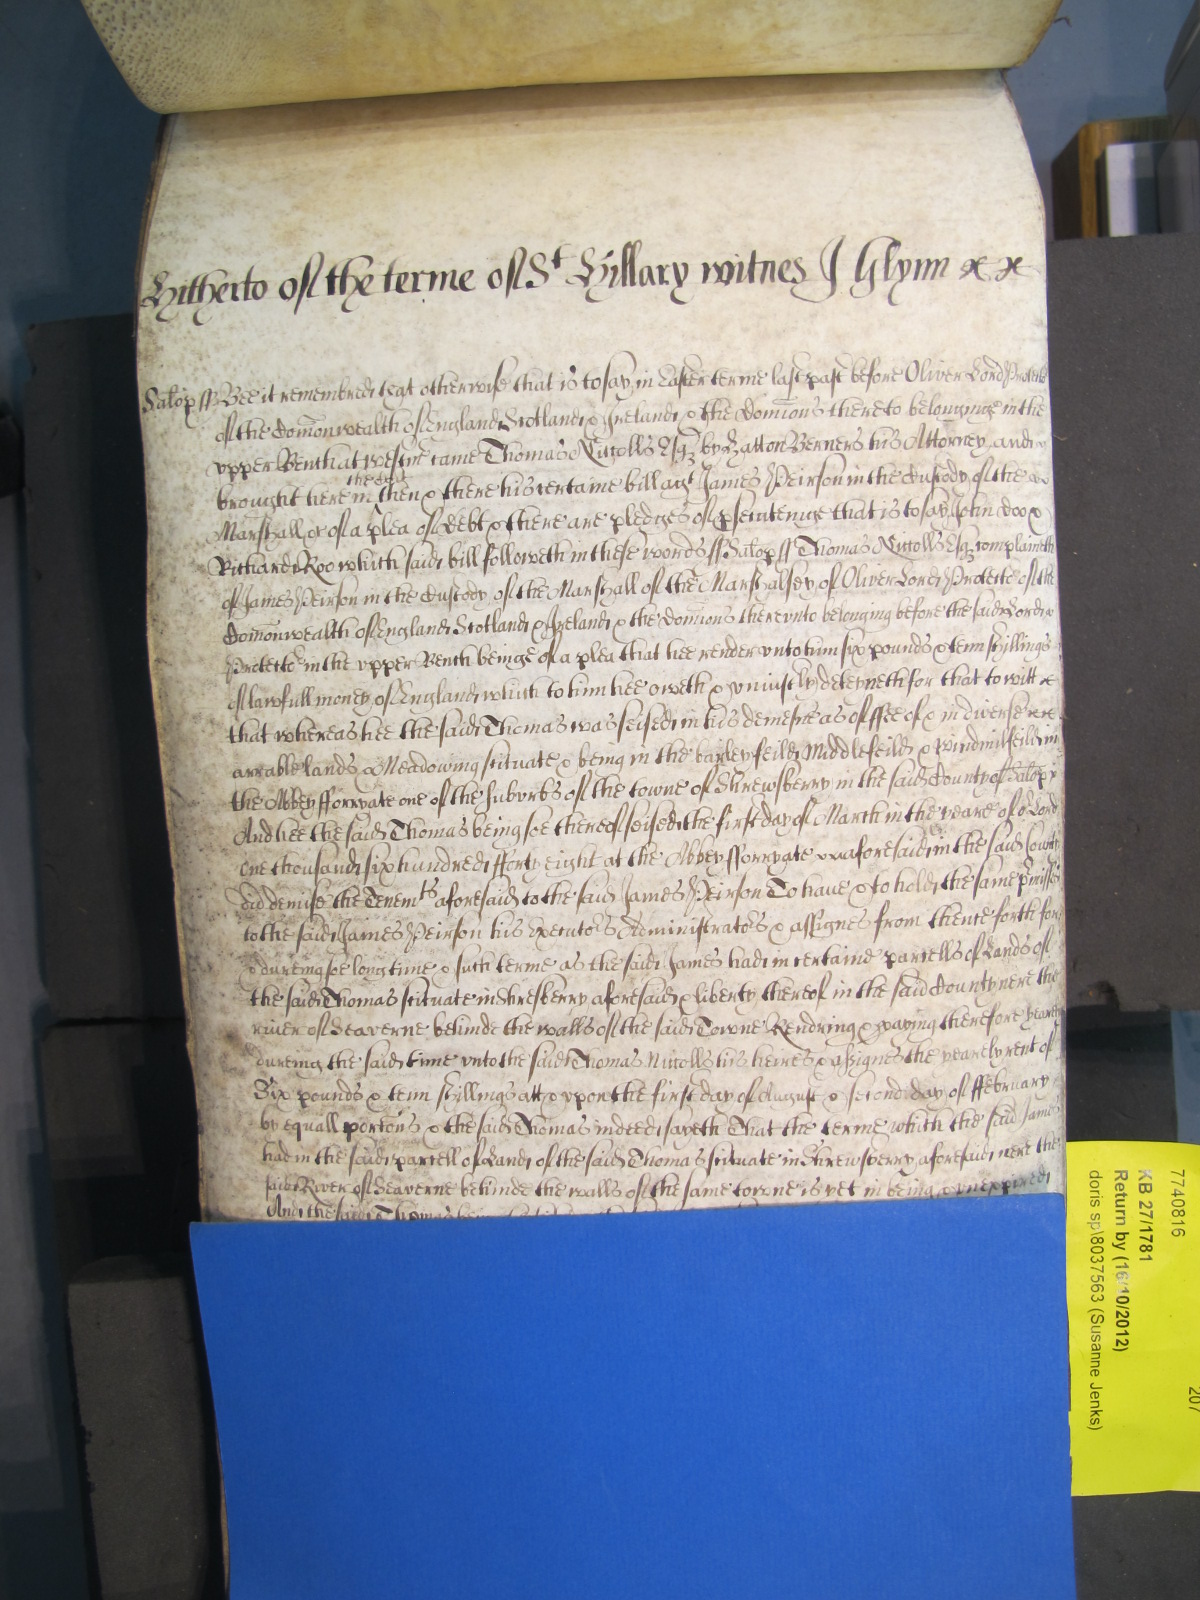 Hitherto of the terme of St Hillary witnes J Glynn
Salop ss Bee it remembred that otherwise that is to say in Easter terme last past before Oliver Lord Protector
of the Comonwealth of England Scotland & Ireland & the Dominions thereto belonginge in the
upper Bench at Westmr came Thomas Nicolls Esqr by Hatton Berners his Attorney and
brought here in then & there his certaine bill agt James Peirson in the Custody of the
Marshall &c of a plea of Debt & there are pledges of psecutinge that is to say John Doo &
Richard Roo which said bill followeth in these words ss Salop ss Thomas Nicolls Esqr complaineth
of James Peirson in the Custody of the Marshall of the Marshalsey of Oliver Lord Protector of the
Comonwealth of England Scotland & Ireland & the Dominions thereunto belonging before the said Lord
Protector in the upper Bench beinge of a plea that hee render unto him six pounds & tenn shillings
of lawfull money of England which to him hee oweth & uniustly deteyneth for that to witt
that whereas hee the said Thomas was seised in his demesne as of ffee of & in diverse
arrable lands & Meadowing scituate & being in the Middlefeild & Windmilfeild in
the Abbey fforryate one of the suburbs of the towne of Shrewsberry in the said County of Salop
And hee the said Thomas being soe thereof seised the first day of March in the yeare of or Lord
one thousand six hundred fforty eight at the Abbey fforrygate aforesaid in the said County
did demise the Tenemts aforesaid to the said James Peirson To have & to hold the same pmisses
to the said James Peirson his Executors Administrators & assignes from thence forth for
& dureing soe long time & such terme as the said James had in certaine parcells of Lands of
the said Thomas scituate in Shresberry aforesaid & liberty thereof in the said County nere the
river of Seaverne behinde the walls of the said Towne Rendring & paying therefore yearely
dureing the said time unto the said Thomas Nicolls his heires & assignes the yearely rent of
Six pounds & tenn shillings att & upon the first day of August & second day of ffebruary
by equall portons & the said Thomas indeed sayeth That the terme which the said James
had in the said parcell of Land of the said Thomas scituate in Shrewsberry aforesaid nere the
said River of Seaverne behinde the walls of the same towne is yet in being & unexpired
And the said Thomas
7740816
KB 27/1781
Return by (16/10/2012)
doris sp\8037563 (Susanne Jenks)
207